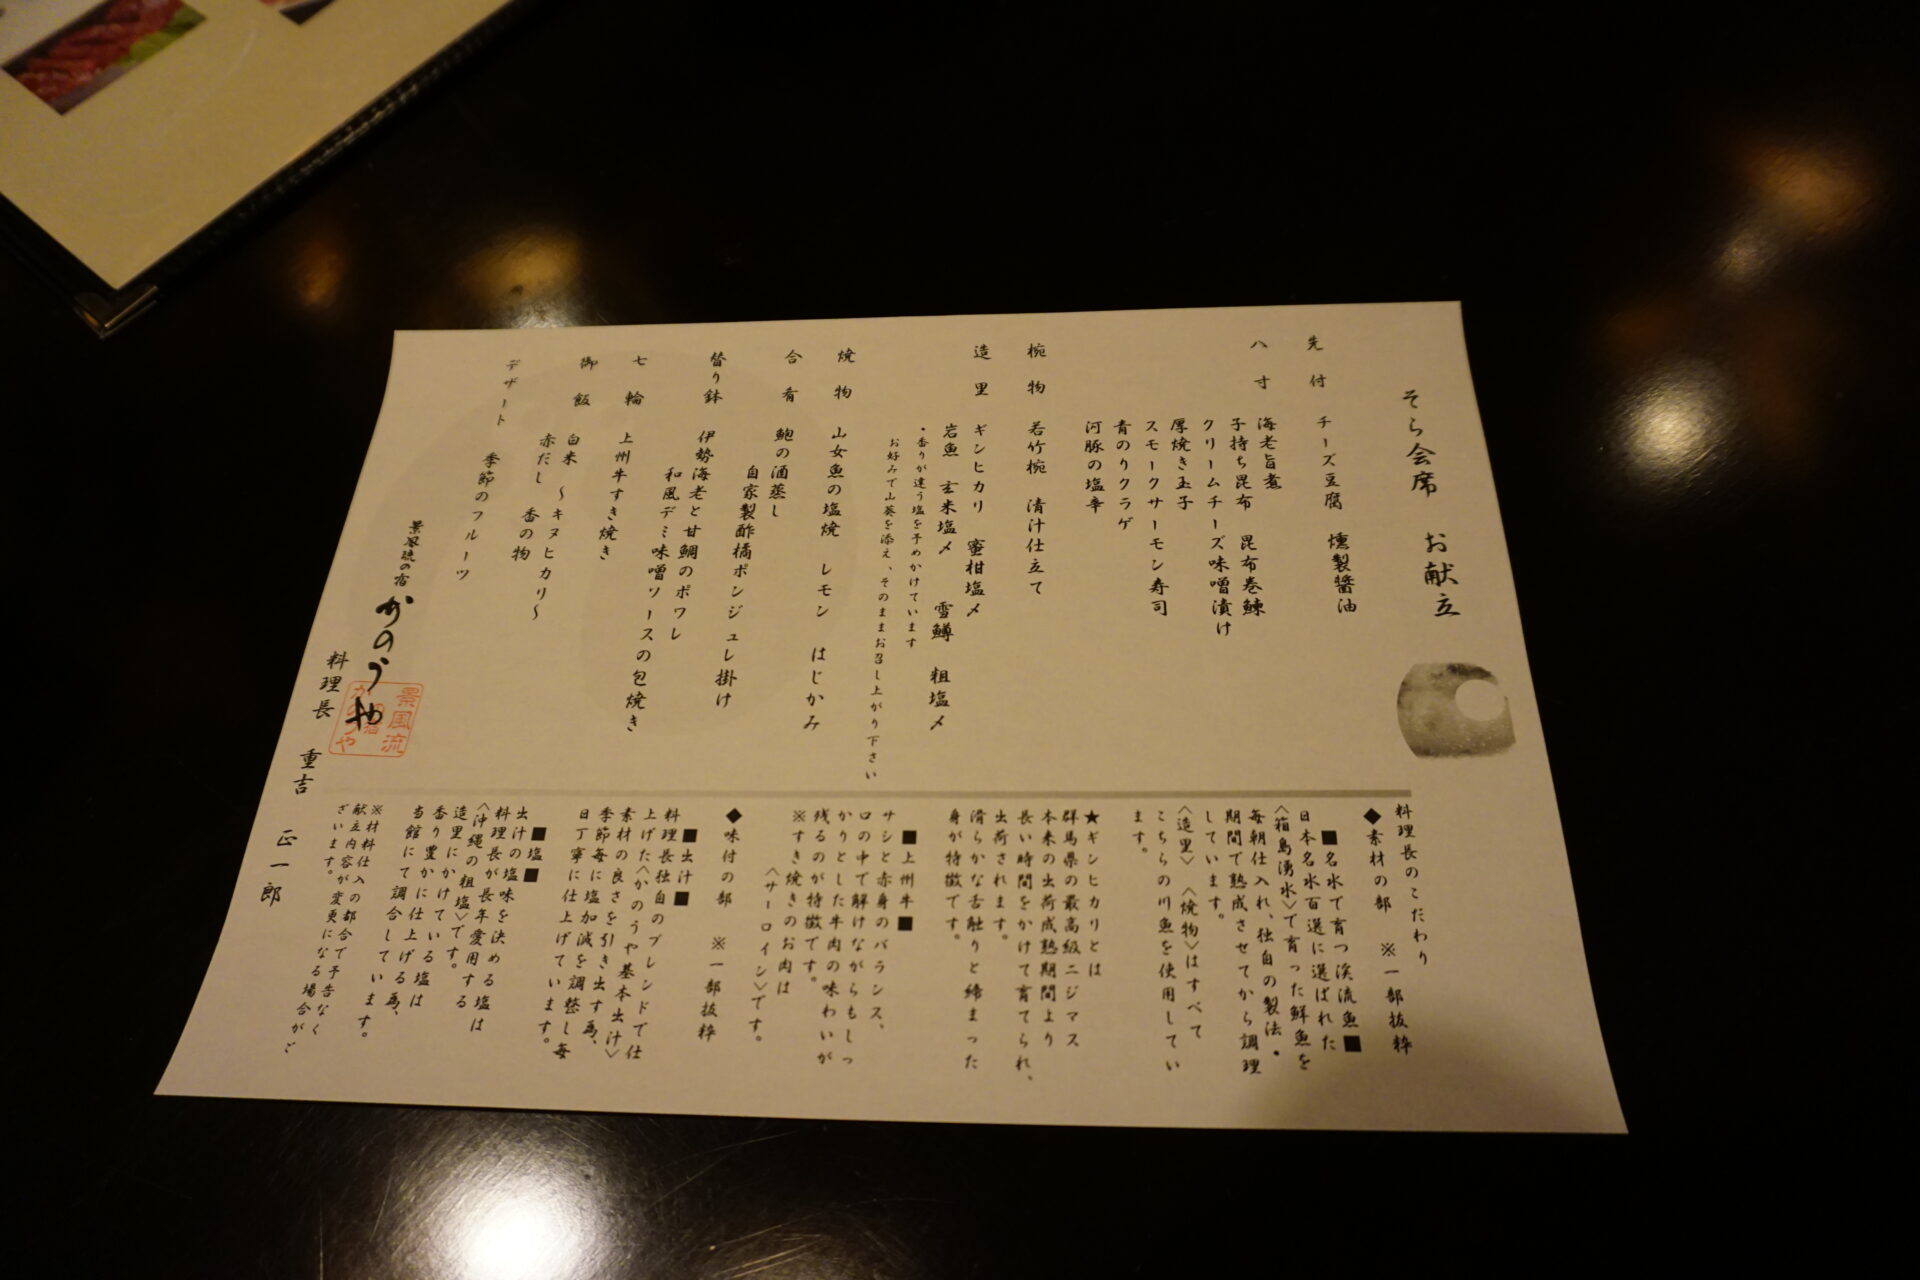 そら会席　お献立
先付　チーズ豆腐　燻製醤油
八寸　海老旨煮
子持ち昆布　昆布巻鰊
クリームチーズ味噌漬け
厚焼き玉子
スモークサーモン寿司
青のりクラゲ
河豚の塩辛
椀物　若竹椀　清汁仕立て
造里　ギンヒカリ　蜜柑塩〆
岩魚　玄米塩〆　雪鱒　粗塩〆
・香りが違う塩を予めかけています
お好みで山葵を添え、そのままお召し上がり下さい
焼物　山女魚の塩焼　レモン　はじかみ
合肴　鮑の酒蒸し
自家製酢橘ポンジュレ掛け
替り鉢　伊勢海老と甘鯛のポワレ
和風デミ味噌ソースの包焼き
七輪　上州牛すき焼き
御飯　白米　～キヌヒカリ～
赤だし　香の物
デザート　季節のフルーツ
景風流の宿　かのうや
景風流
の宿
かのうや
料理長　重吉　正一郎
料理長のこだわり
◆素材の部　※一部抜粋
■名水で育つ渓流魚■
日本名水百選に選ばれた
〈箱島湧水〉で育った鮮魚を
毎朝仕入れ、独自の製法・
期間で熟成させてから調理
しています。
〈造里〉〈焼物〉はすべて
こちらの川魚を使用してい
ます。
★ギンヒカリとは
群馬県の最高級ニジマス
本来の出荷成熟期間より
長い時間をかけて育てられ、
出荷されます。
滑らかな舌触りと締まった
身が特徴です。
■上州牛■
サシと赤身のバランス、
口の中で解けながらもしっ
かりとした牛肉の味わいが
残るのが特徴です。
※すき焼きのお肉は
〈サーロイン〉です。
◆味付の部　※一部抜粋
■出汁■
料理長独自のブレンドで仕
上げた〈かのうや基本出汁〉
素材の良さを引き出す為、
季節毎に塩加減を調整し毎
日丁寧に仕上げています。
■塩■
出汁の塩味を決める塩は
料理長が長年愛用する
〈沖縄の粗塩〉です。
造里にかけている塩は
香り豊かに仕上げる為、
当館にて調合しています。
※材料仕入の都合で予告なく
献立内容が変更になる場合がご
ざいます。